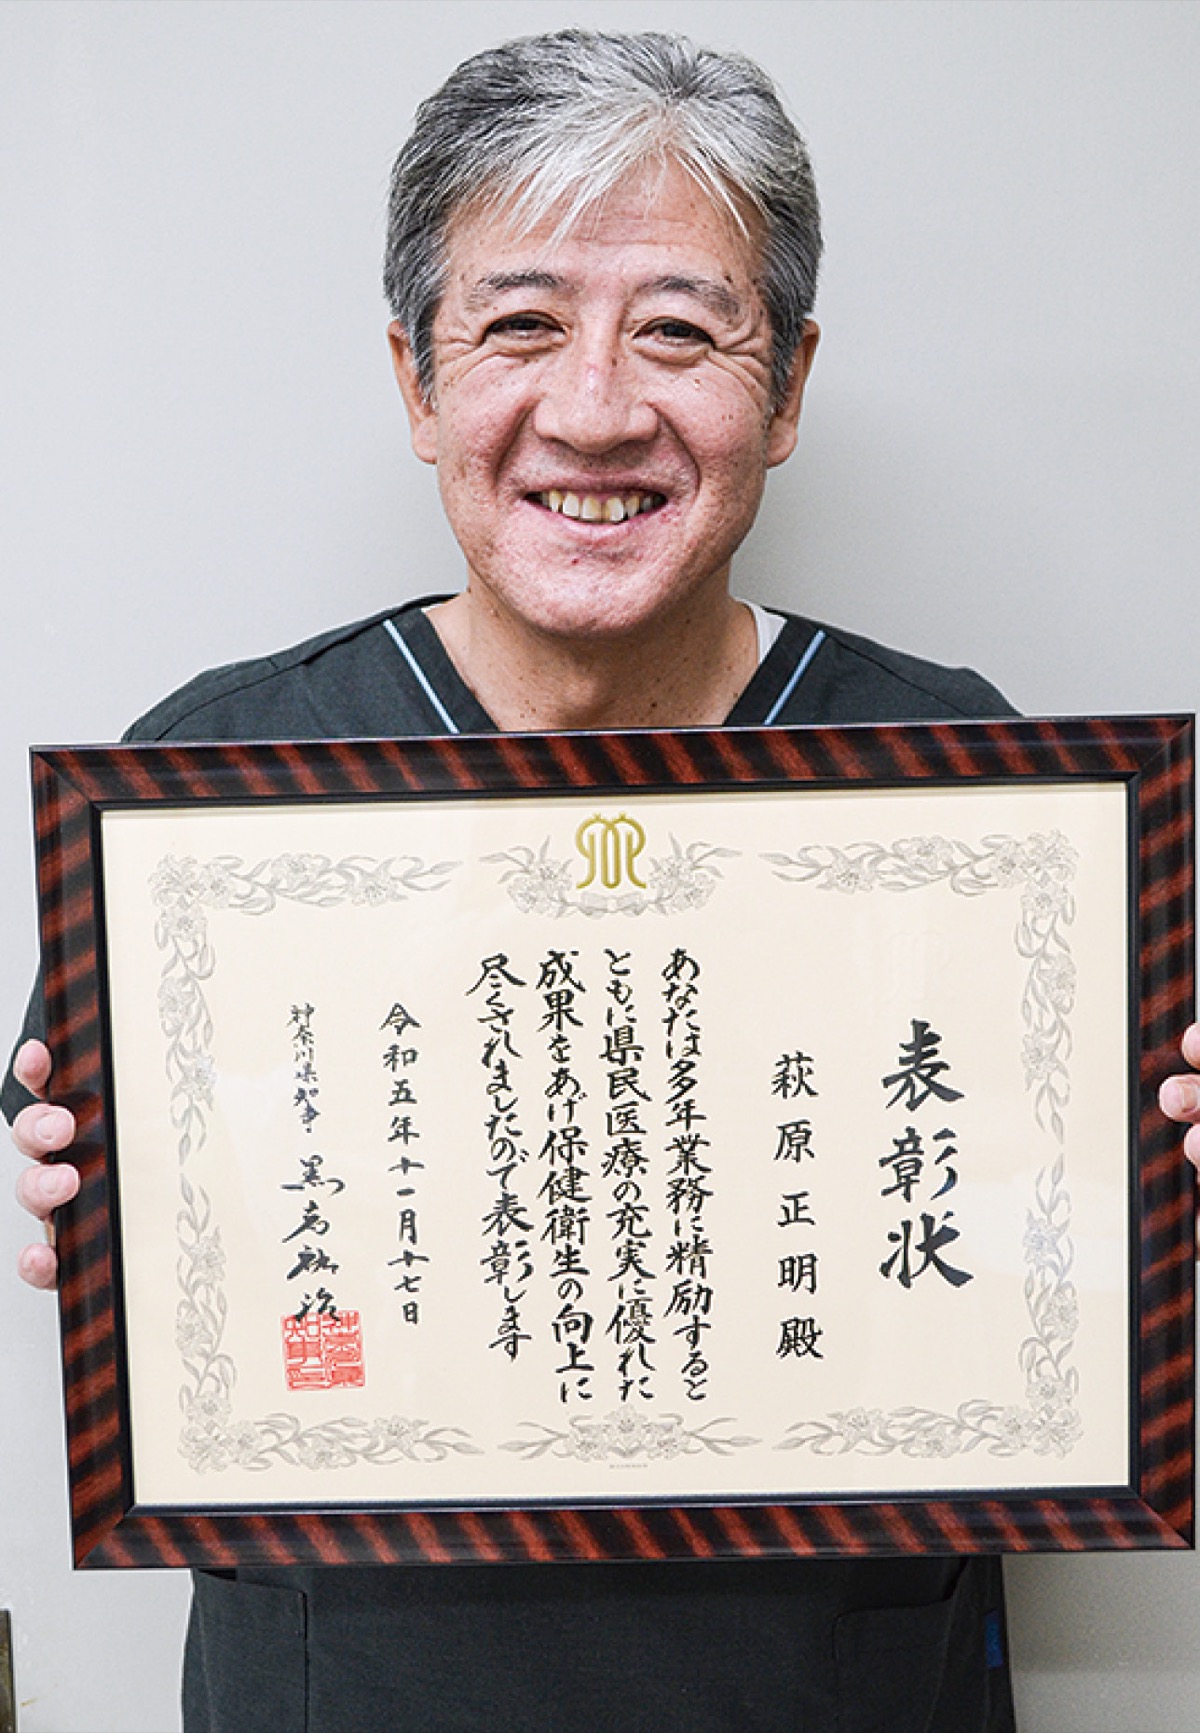 表彰状
萩原正明殿
あなたは多年業務に精励すると
ともに県民医療の充実に優れた
成果をあげ保健衛生の向上に
尽くされましたので表彰します
令和五年十一月十七日
神奈川県知事 黒岩祐治